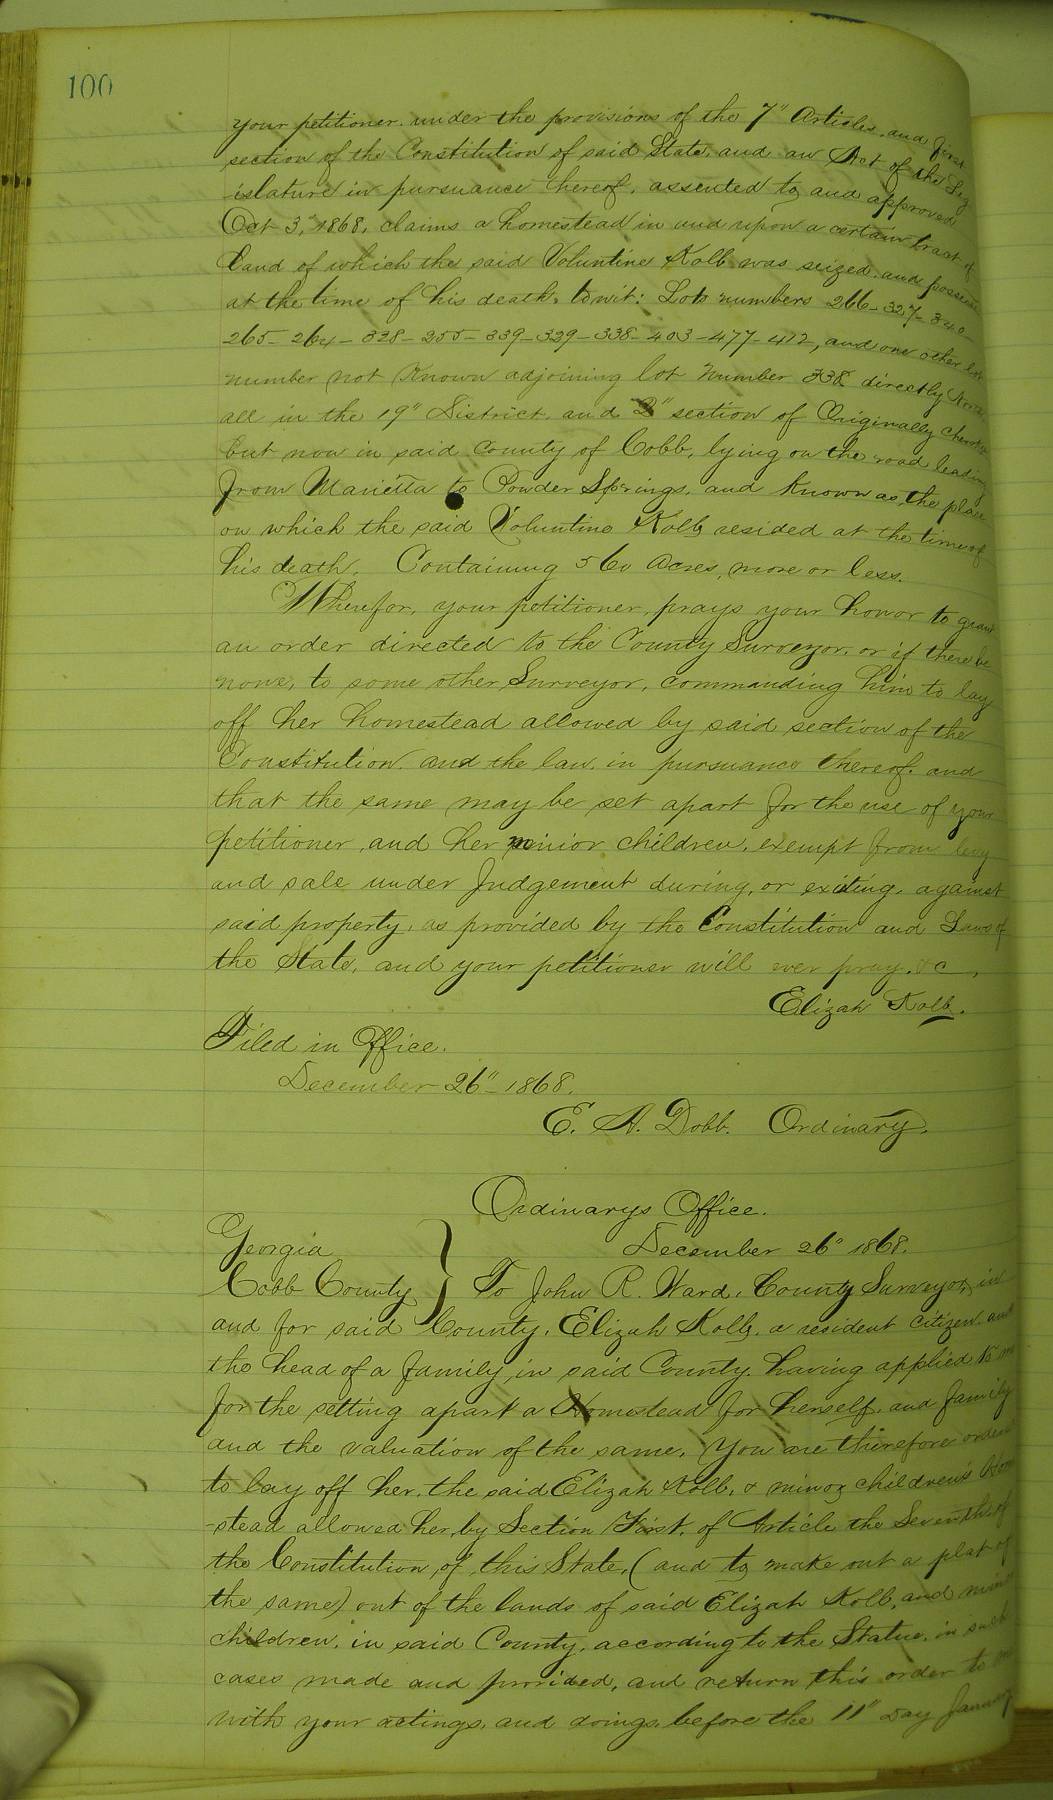 100
your petitioner. under the provisions of the 7" Articles, and first
section of the Constitution of said State, and an Act of the Leg
islature in pursuance thereof, assented to and approved
Oct 3," 1868, claims a homestead in and upon a certain tract of
Land of which the said Voluntine Kolb was seized and possess
at the time of his death, towit: Lots numbers 266-327-340
265-264-328-255-339-329-338-403-477-412, and one other lot
number not Known adjoining lot number 338 directly North,
all in the 19" District, and 2" section of Originally Cherokee
but now in said County of Cobb, lying on the road leading
from Marietta to Powder Springs, and Known as, the place
on which the said Voluntine Kolb resided at the time of
his death. Containing 560 Acres, more or less.
Wherefor, your petitioner, prays your honor to grant
an order directed to the County Surveyor, or if there be
none, to some other Surveyor, commanding him to lay
off her homestead allowed by said section of the
Constitution and the law in pursuance thereof. and
that the same may be set apart for the use of your
petitioner, and her minior children, exempt from levy
and sale under Judgement during, or exiting, against
said property, as provided by the Constitution and Laws of
the State, and your petitioner will ever pray. &c,
Elizah Kolb.
Filed in Office.
December 26" 1868.
E. A. Dobb. Ordinary.
Ordinarys Office.
Georgia
December 26" 1868.
Cobb County } To John R. Ward, County Surveyor, in
and for said County. Elizah Kolb, a resident Citizen and
the head of a family in said County. having applied to me
for the setting apart a Homestead for herself, and family
and the valuation of the same, You are therefore orderd
to lay off her, the said Elizah Kolb, & minor children's Hom
-stead allowed her, by Section First, of Article the Seventh, of
the Constitution of this State, (and to make out a plat of
the same) out of the lands of said Elizah Kolb, and minor
children, in said County, according to the Statue, in such
cases made and provided, and return this order to me
with your actings, and doings, before the 11" Day January